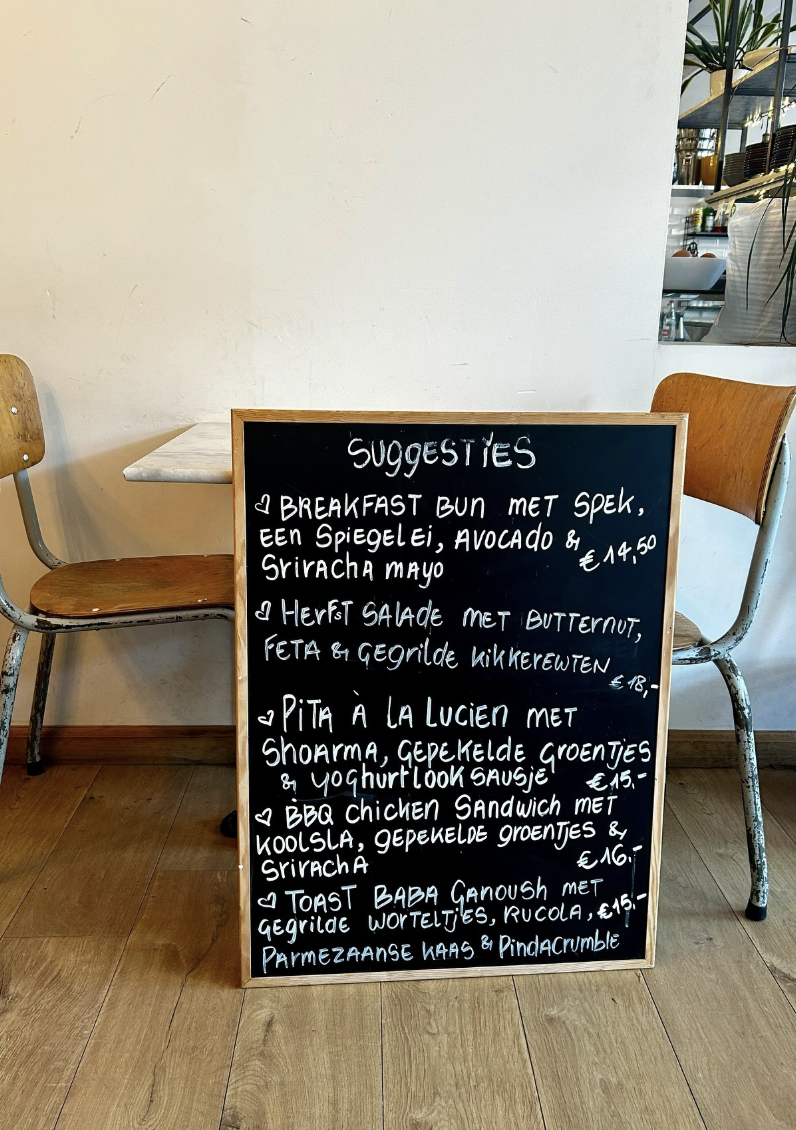 SUGGESTIES
♡ BREAKFAST BUN MET SPEK,
EEN SPIEGELEI, AVOCADO &
€ 14,50
SRIRACHA MAYO
♡ HERFST SALADE MET BUTTERNUT,
FETA & GEGRILDE KIKKEREWTEN
€ 18,-
♡ PITA À LA LUCIEN MET
SHOARMA, GEPEKELDE GROENTJES
& YOGHURTLOOK SAUSJE € 15,-
♡ BBQ CHICKEN SANDWICH MET
KOOLSLA, GEPEKELDE GROENTJES &
SRIRACHA € 16,-
♡ TOAST BABA GANOUSH MET
GEGRILDE WORTELTJES, RUCOLA, € 15,-
PARMEZAANSE KAAS & PINDACRUMBLE